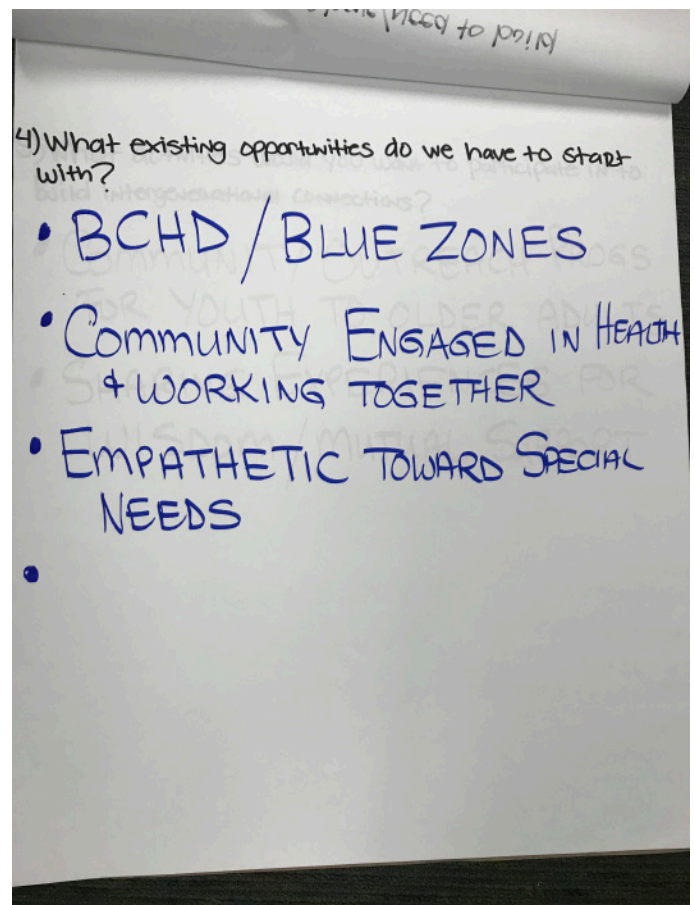 need to build
4) What existing opportunities do we have to start
with?
• BCHD / BLUE ZONES
• COMMUNITY ENGAGED IN HEALTH
& WORKING TOGETHER
• EMPATHETIC TOWARD SPECIAL
NEEDS
•